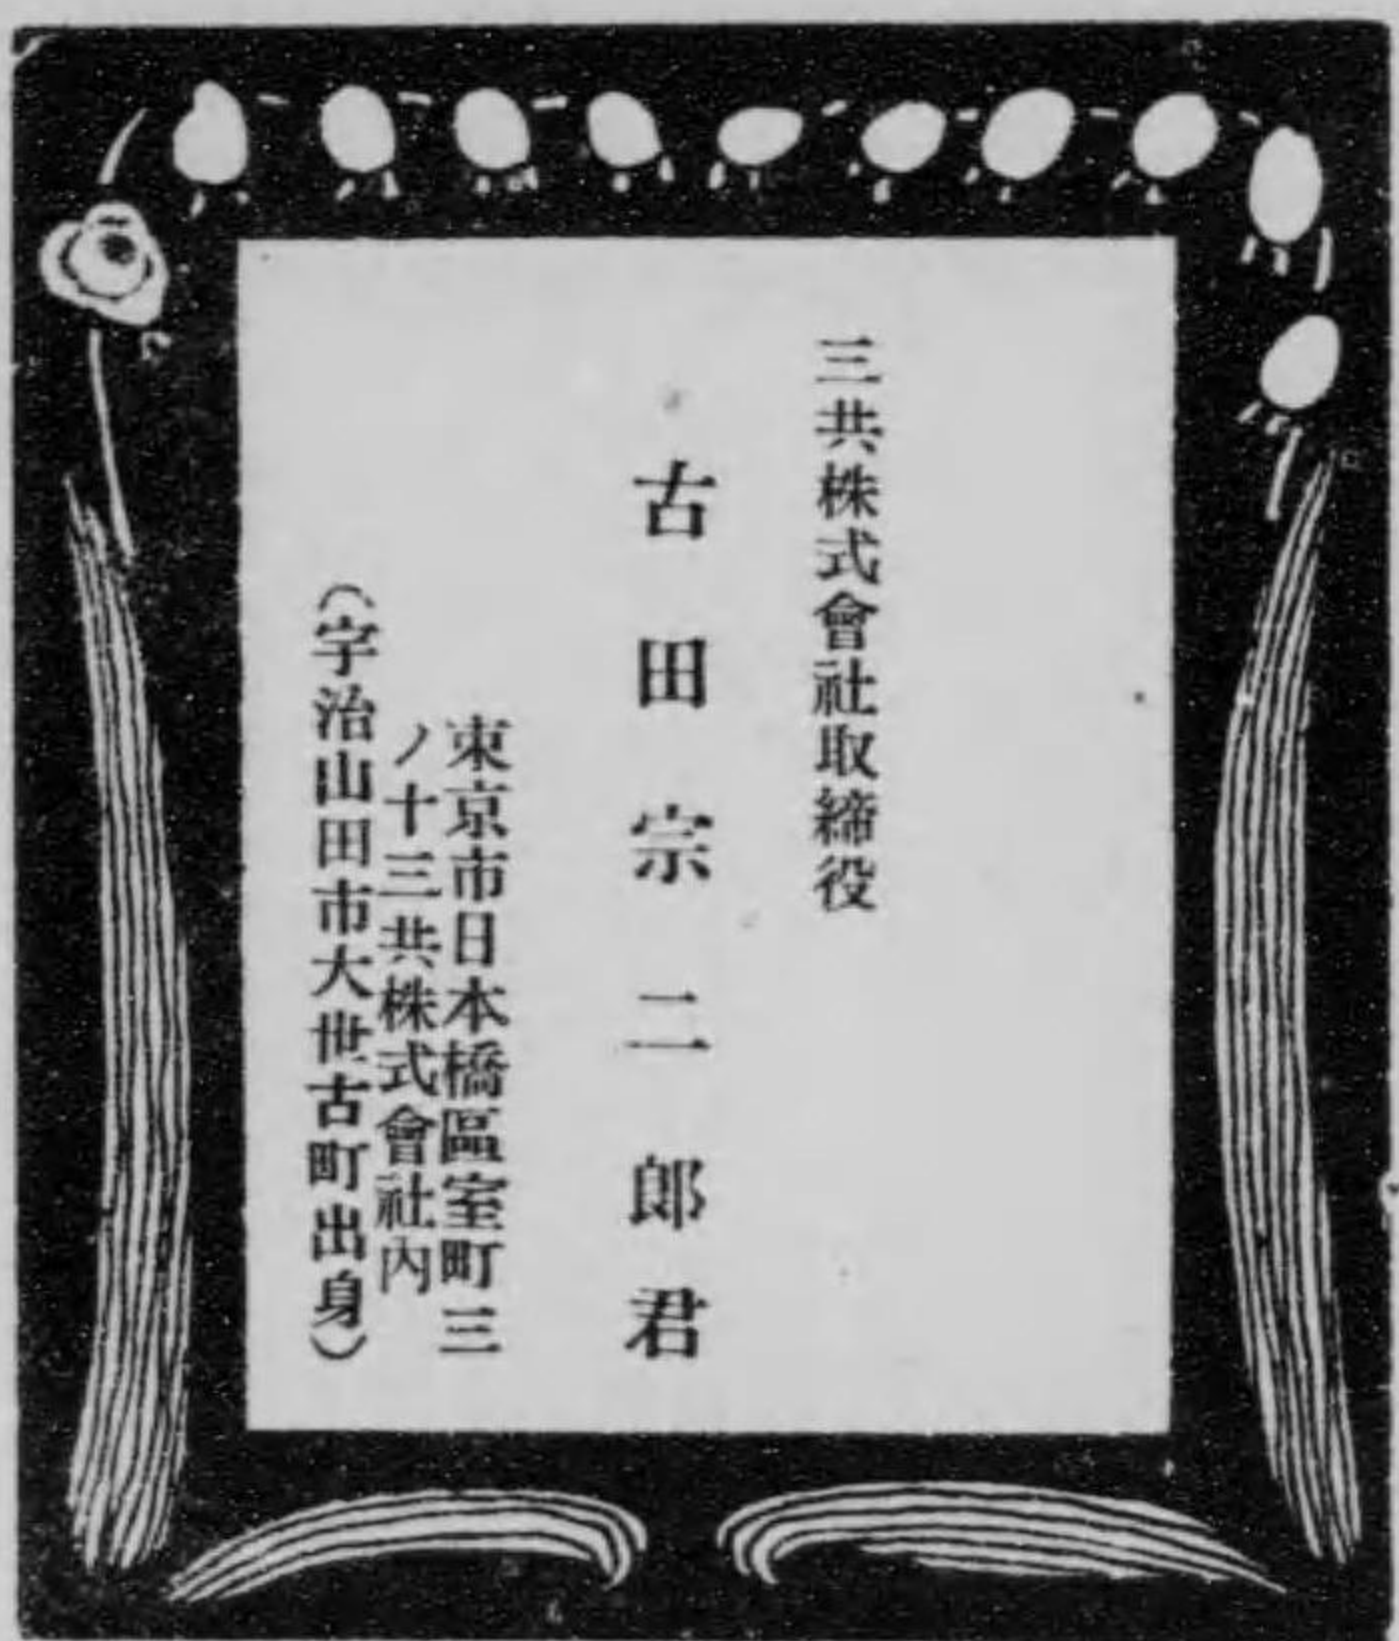 三共株式會社取締役
古田宗二郎君
東京市日本橋區室町三
ノ十三共株式會社內
（宇治山田市大世古町出身）